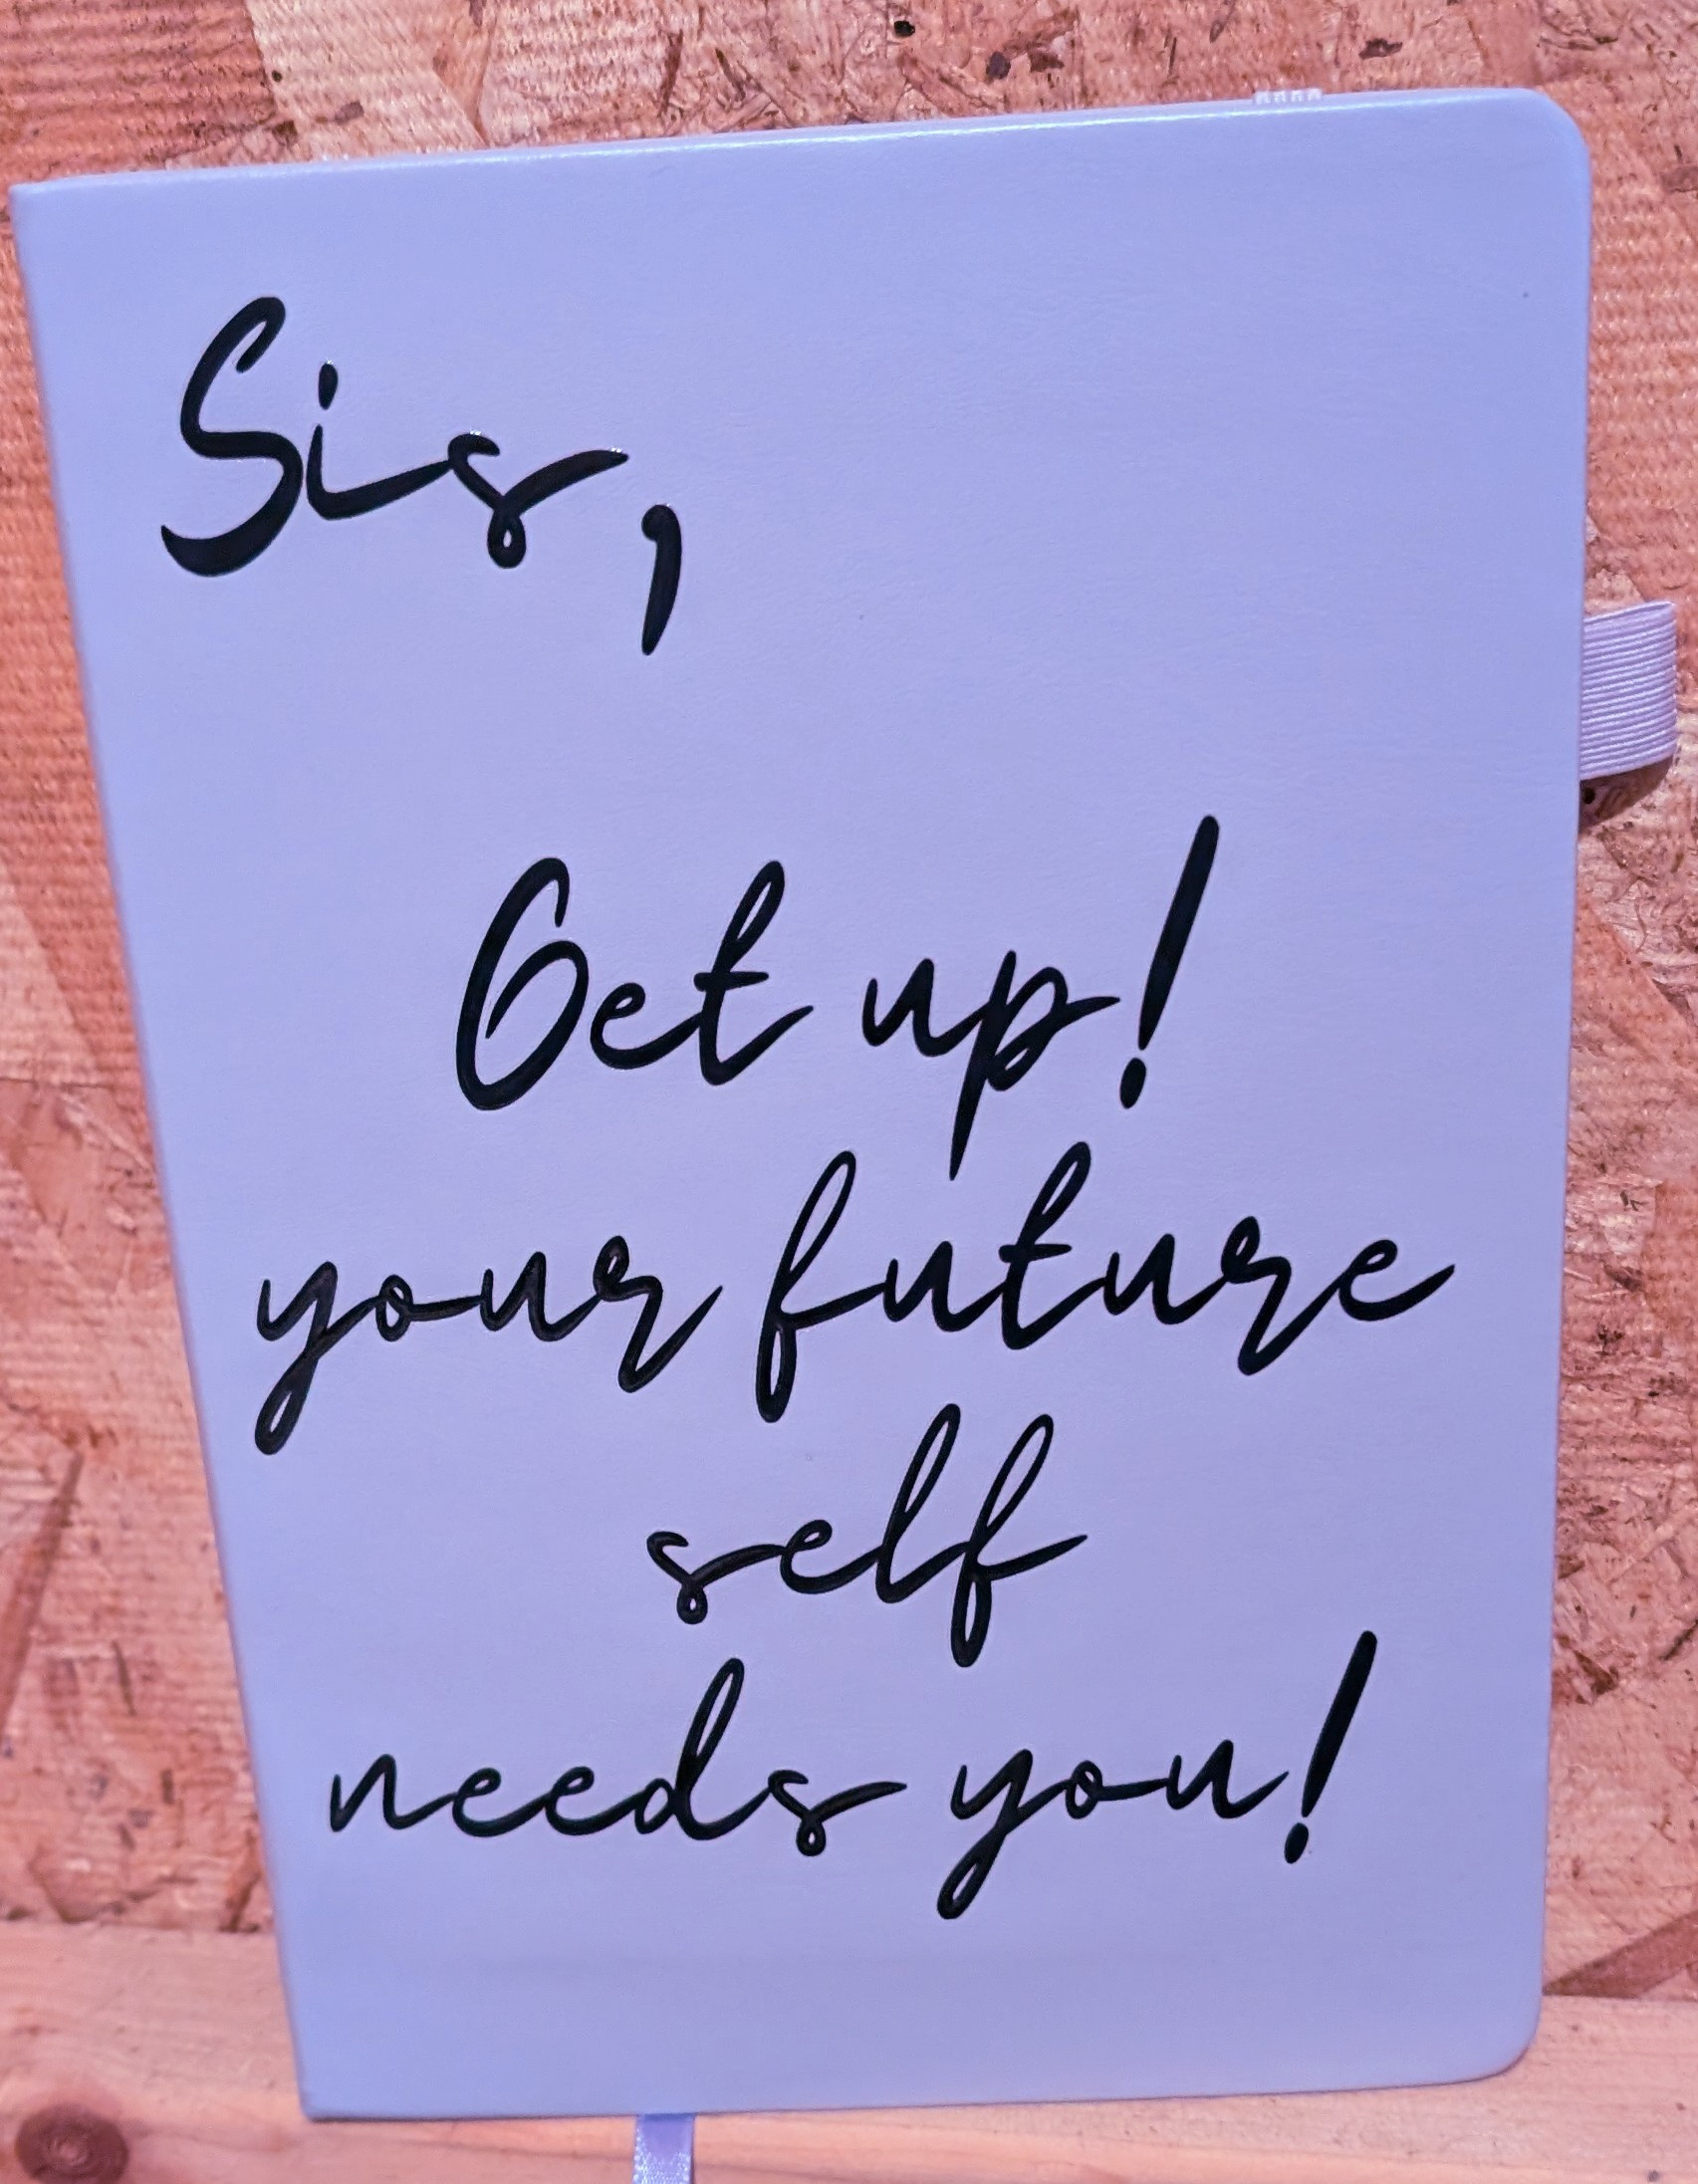 Sis,
Get up!
your future
self
needs you!